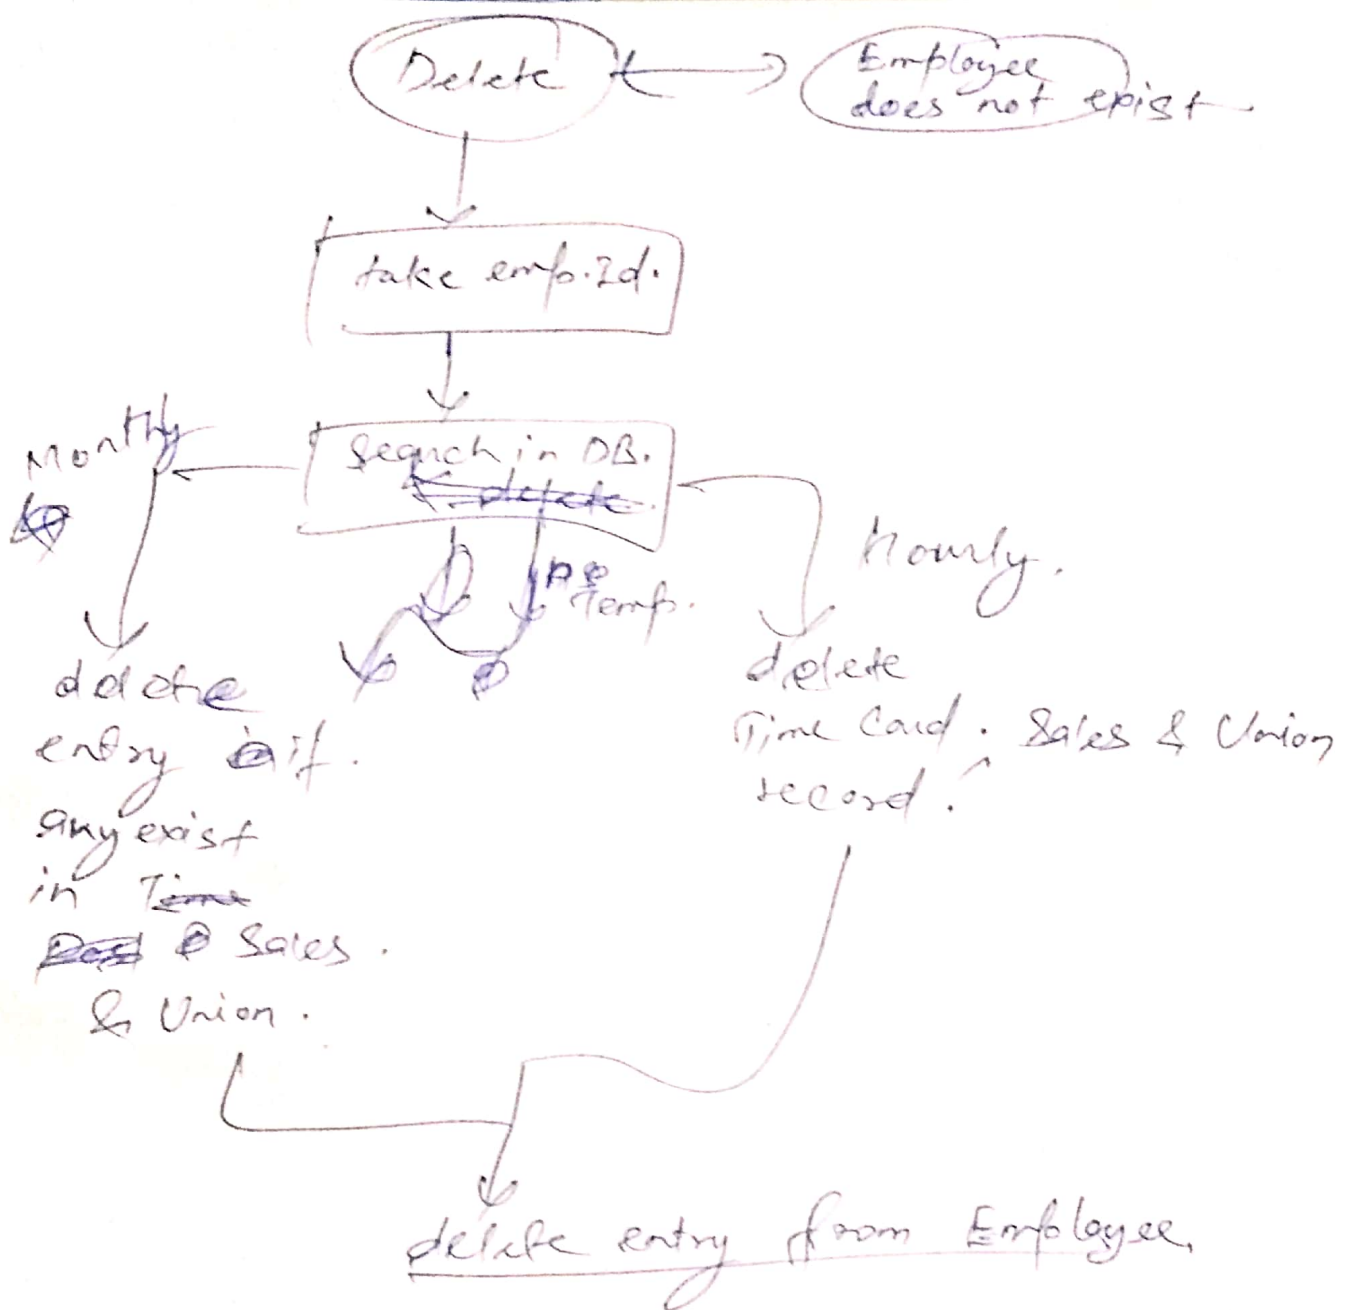 Delete
Employee
does not exist
take emp.Id.
Search in DB.
delete
Monthly
Hourly.
Temp.
delete
entry if.
any exist
in Time
Sales.
& Union.
delete
Time Card. Sales & Union
record.
delete entry from Employee